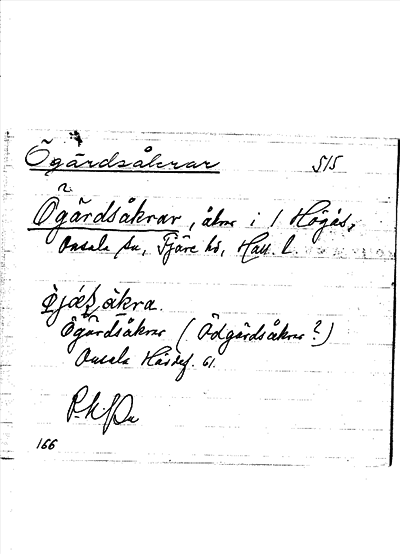 Ögärdsåkrar 515
Ögärdsåkrar, åkrar i 1 Högås,
Onsala sn, Fjäre hd, Hall. l.
Ögärdsåkrar (Ödgärdsåkrar?)
Onsala Härdsf. 61.
166